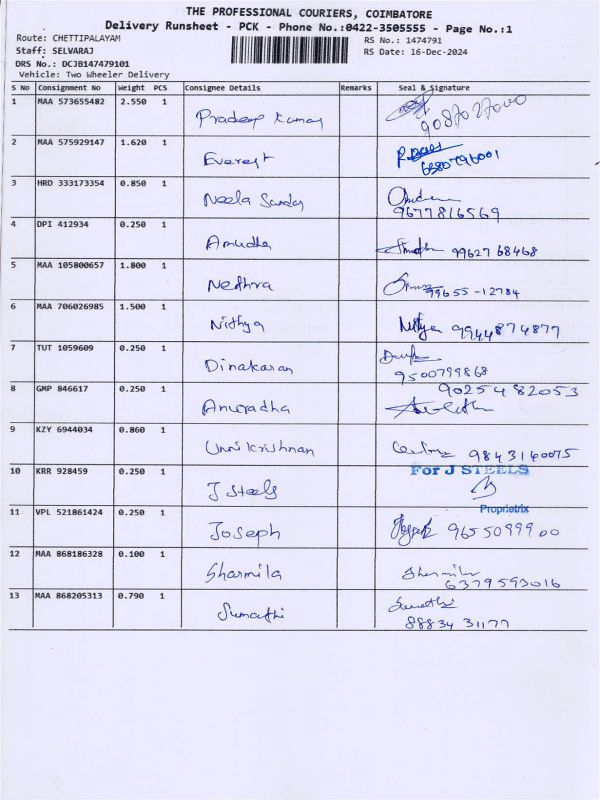 THE PROFESSIONAL COURIERS, COIMBATORE
Delivery Runsheet - PCK - Phone No.:0422-3505555 - Page No.:1
Route: CHETTIPALAYAM RS No.: 1474791
Staff: SELVARAJ RS Date: 16-Dec-2024
DRS No.: DCJB147479101
Vehicle: Two Wheeler Delivery
S No Consignment No Weight PCS Consignee Details Remarks Seal & Signature
1 MAA 573655482 2.550 1 Pradeep Kumar 9087027000
2 MAA 575929147 1.620 1 Everest 6380796001
3 HRD 333173354 0.850 1 Neela Sundar 9677816569
4 DPI 412934 0.250 1 Amudha 99627 68468
5 MAA 105800657 1.800 1 Nethra 99655-12784
6 MAA 706026985 1.500 1 Nithya Nithya 9944874877
7 TUT 1059609 0.250 1 Dinakaran 9500799868
8 GMP 846617 0.250 1 Anuradha 9025482053
9 KZY 6944034 0.860 1 Unnikrishnan 9843140075
10 KRR 928459 0.250 1 J Steels For J STEELS
Proprietrix
11 VPL 521861424 0.250 1 Joseph Joseph 9655099900
12 MAA 868186328 0.100 1 Sharmila Sharmila
6379593016
13 MAA 868205313 0.790 1 Sumathi Sumathi
88834 31177